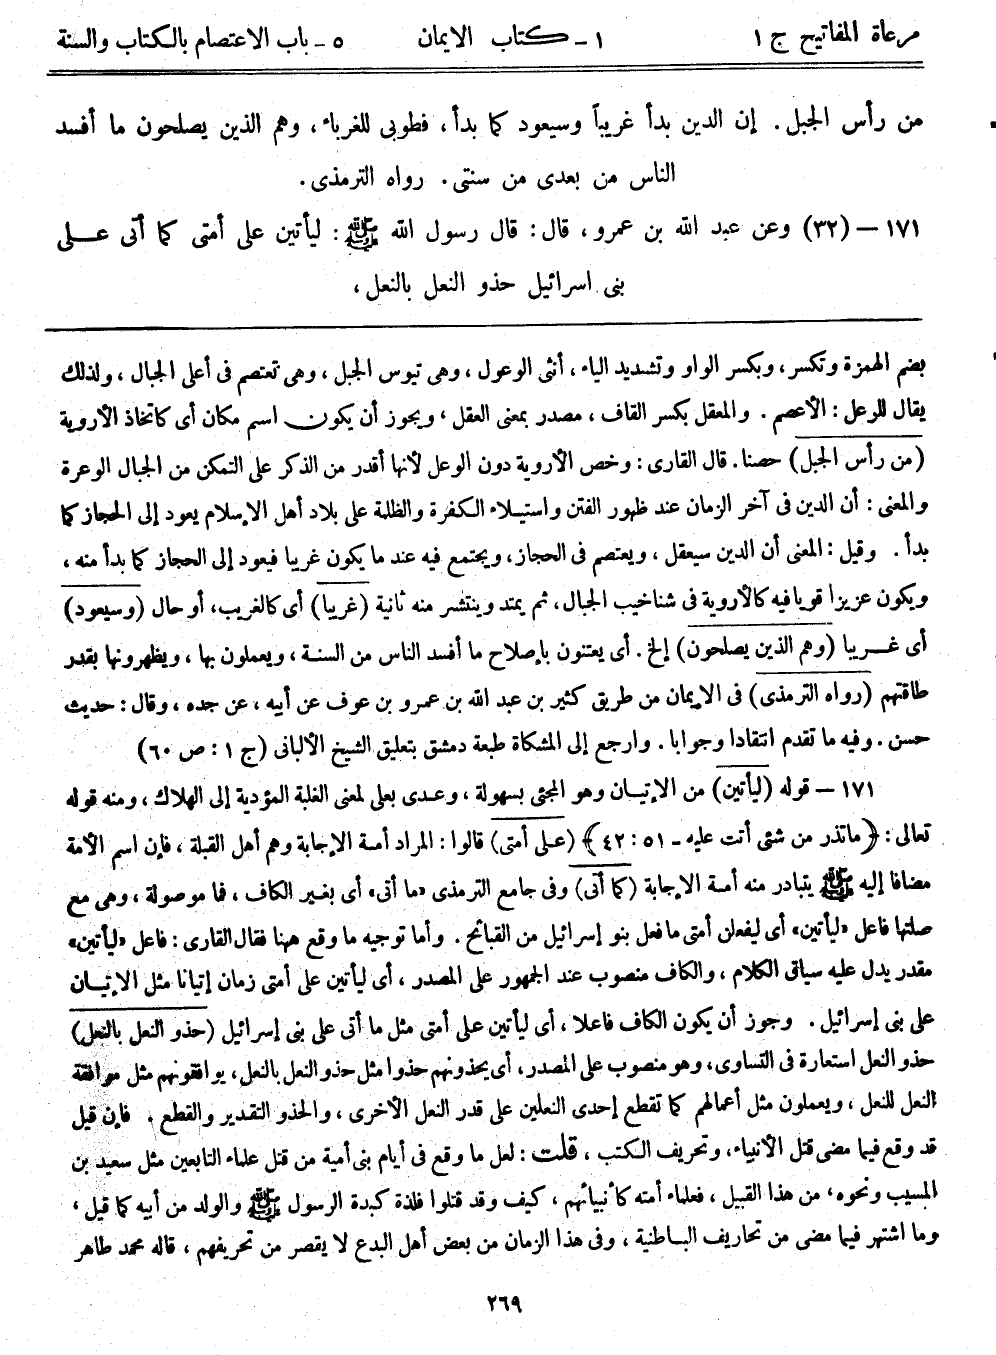 مرعاة المفاتيح ج ١ ١ - كتاب الايمان ٥ - باب الاعتصام بالكتاب والسنة
من رأس الجبل. إن الدين بدأ غريباً وسيعود كما بدأ، فطوبى للغرباء، وهم الذين يصلحون ما أفسد
الناس من بعدى من سنتى. رواه الترمذى.
١٧١ – (٣٢) وعن عبد الله بن عمرو، قال: قال رسول الله ﷺ: ليأتين على أمتى كما أتى على
بنى اسرائيل حذو النعل بالنعل،
بضم الهمزة وتكسر، وبكسر الواو وتشديد الياء، أنثى الوعول، وهى تيوس الجبل، وهى تعتصم فى أعلى الجبال، ولذلك
يقال للوعل: الأعصم. والمعقل بكسر القاف، مصدر بمعنى العقل، ويجوز أن يكون اسم مكان أى كاتخاذ الأروية
(من رأس الجبل) حصنا. قال القارى: وخص الأروية دون الوعل لأنها أقدر من الذكر على التمكن من الجبال الوعرة
والمعنى: أن الدين فى آخر الزمان عند ظهور الفتن واستيلاء الكفرة والظلمة على بلاد أهل الإسلام يعود إلى الحجاز كما
بدأ. وقيل: المعنى أن الدين سيعقل، ويعتصم فى الحجاز، ويجتمع فيه عند ما يكون غريبا فيعود إلى الحجاز كما بدأ منه،
ويكون عزيزا قويا فيه كالأروية فى شناخيب الجبال، ثم يمتد وينتشر منه ثانية (غريبا) أى كالغريب، أو حال (وسيعود)
أى غريبا (وهم الذين يصلحون) إلخ. أى يعتنون بإصلاح ما أفسد الناس من السنة، ويعملون بها، ويظهرونها بقدر
طاقتهم (رواه الترمذى) فى الإيمان من طريق كثير بن عبد الله بن عمرو بن عوف عن أبيه، عن جده، وقال: حديث
حسن. وفيه ما تقدم انتقادا وجوابا. وارجع إلى المشكاة طبعة دمشق بتعليق الشيخ الألبانى (ج ١ : ص ٦٠)
١٧١ – قوله (ليأتين) من الإتيان وهو المجئى بسهولة، وعدى بعلى لمعنى الغلبة المؤدية إلى الهلاك، ومنه قوله
تعالى: ﴿ماتذر من شئى أتت عليه - ٥١: ٤٢﴾ (على أمتى) قالوا: المراد أمة الإجابة وهم أهل القبلة، فإن اسم الأمة
مضافا إليه ﷺ يتبادر منه أمة الإجابة (كما أتى) وفى جامع الترمذى «ما أتى» أى بغير الكاف، فما موصولة، وهى مع
صلتها فاعل «ليأتين» أى ليفعلن أمتى ما فعل بنو إسرائيل من القبائح. وأما توجيه ما وقع ههنا فقال القارى: فاعل «ليأتين»
مقدر يدل عليه سياق الكلام، والكاف منصوب عند الجمهور على المصدر، أى ليأتين على أمتى زمان إتيانا مثل الإتيان
على بنى إسرائيل. وجوز أن يكون الكاف فاعلا، أى ليأتين على أمتى مثل ما أتى على بنى إسرائيل (حذو النعل بالنعل)
حذو النعل استعارة فى التساوى، وهو منصوب على المصدر، أى يحذونهم حذوا مثل حذو النعل بالنعل، يوافقونهم مثل موافقة
النعل للنعل، ويعملون مثل أعمالهم كما تقطع إحدى النعلين على قدر النعل الأخرى، والحذو التقدير والقطع. فإن قيل
قد وقع فيما مضى قتل الأنبياء، وتحريف الكتب، قلت: لعل ما وقع فى أيام بنى أمية من قتل علماء التابعين مثل سعيد بن
المسيب ونحوه، من هذا القبيل، فعلماء أمته كأنبيائهم، كيف وقد قتلوا فلذة كبدة الرسول ﷺ والولد من أبيه كما قيل،
وما اشتهر فيما مضى من تحاريف الباطنية، وفى هذا الزمان من بعض أهل البدع لا يقصر من تحريفهم، قاله محمد طاهر
٢٦٩